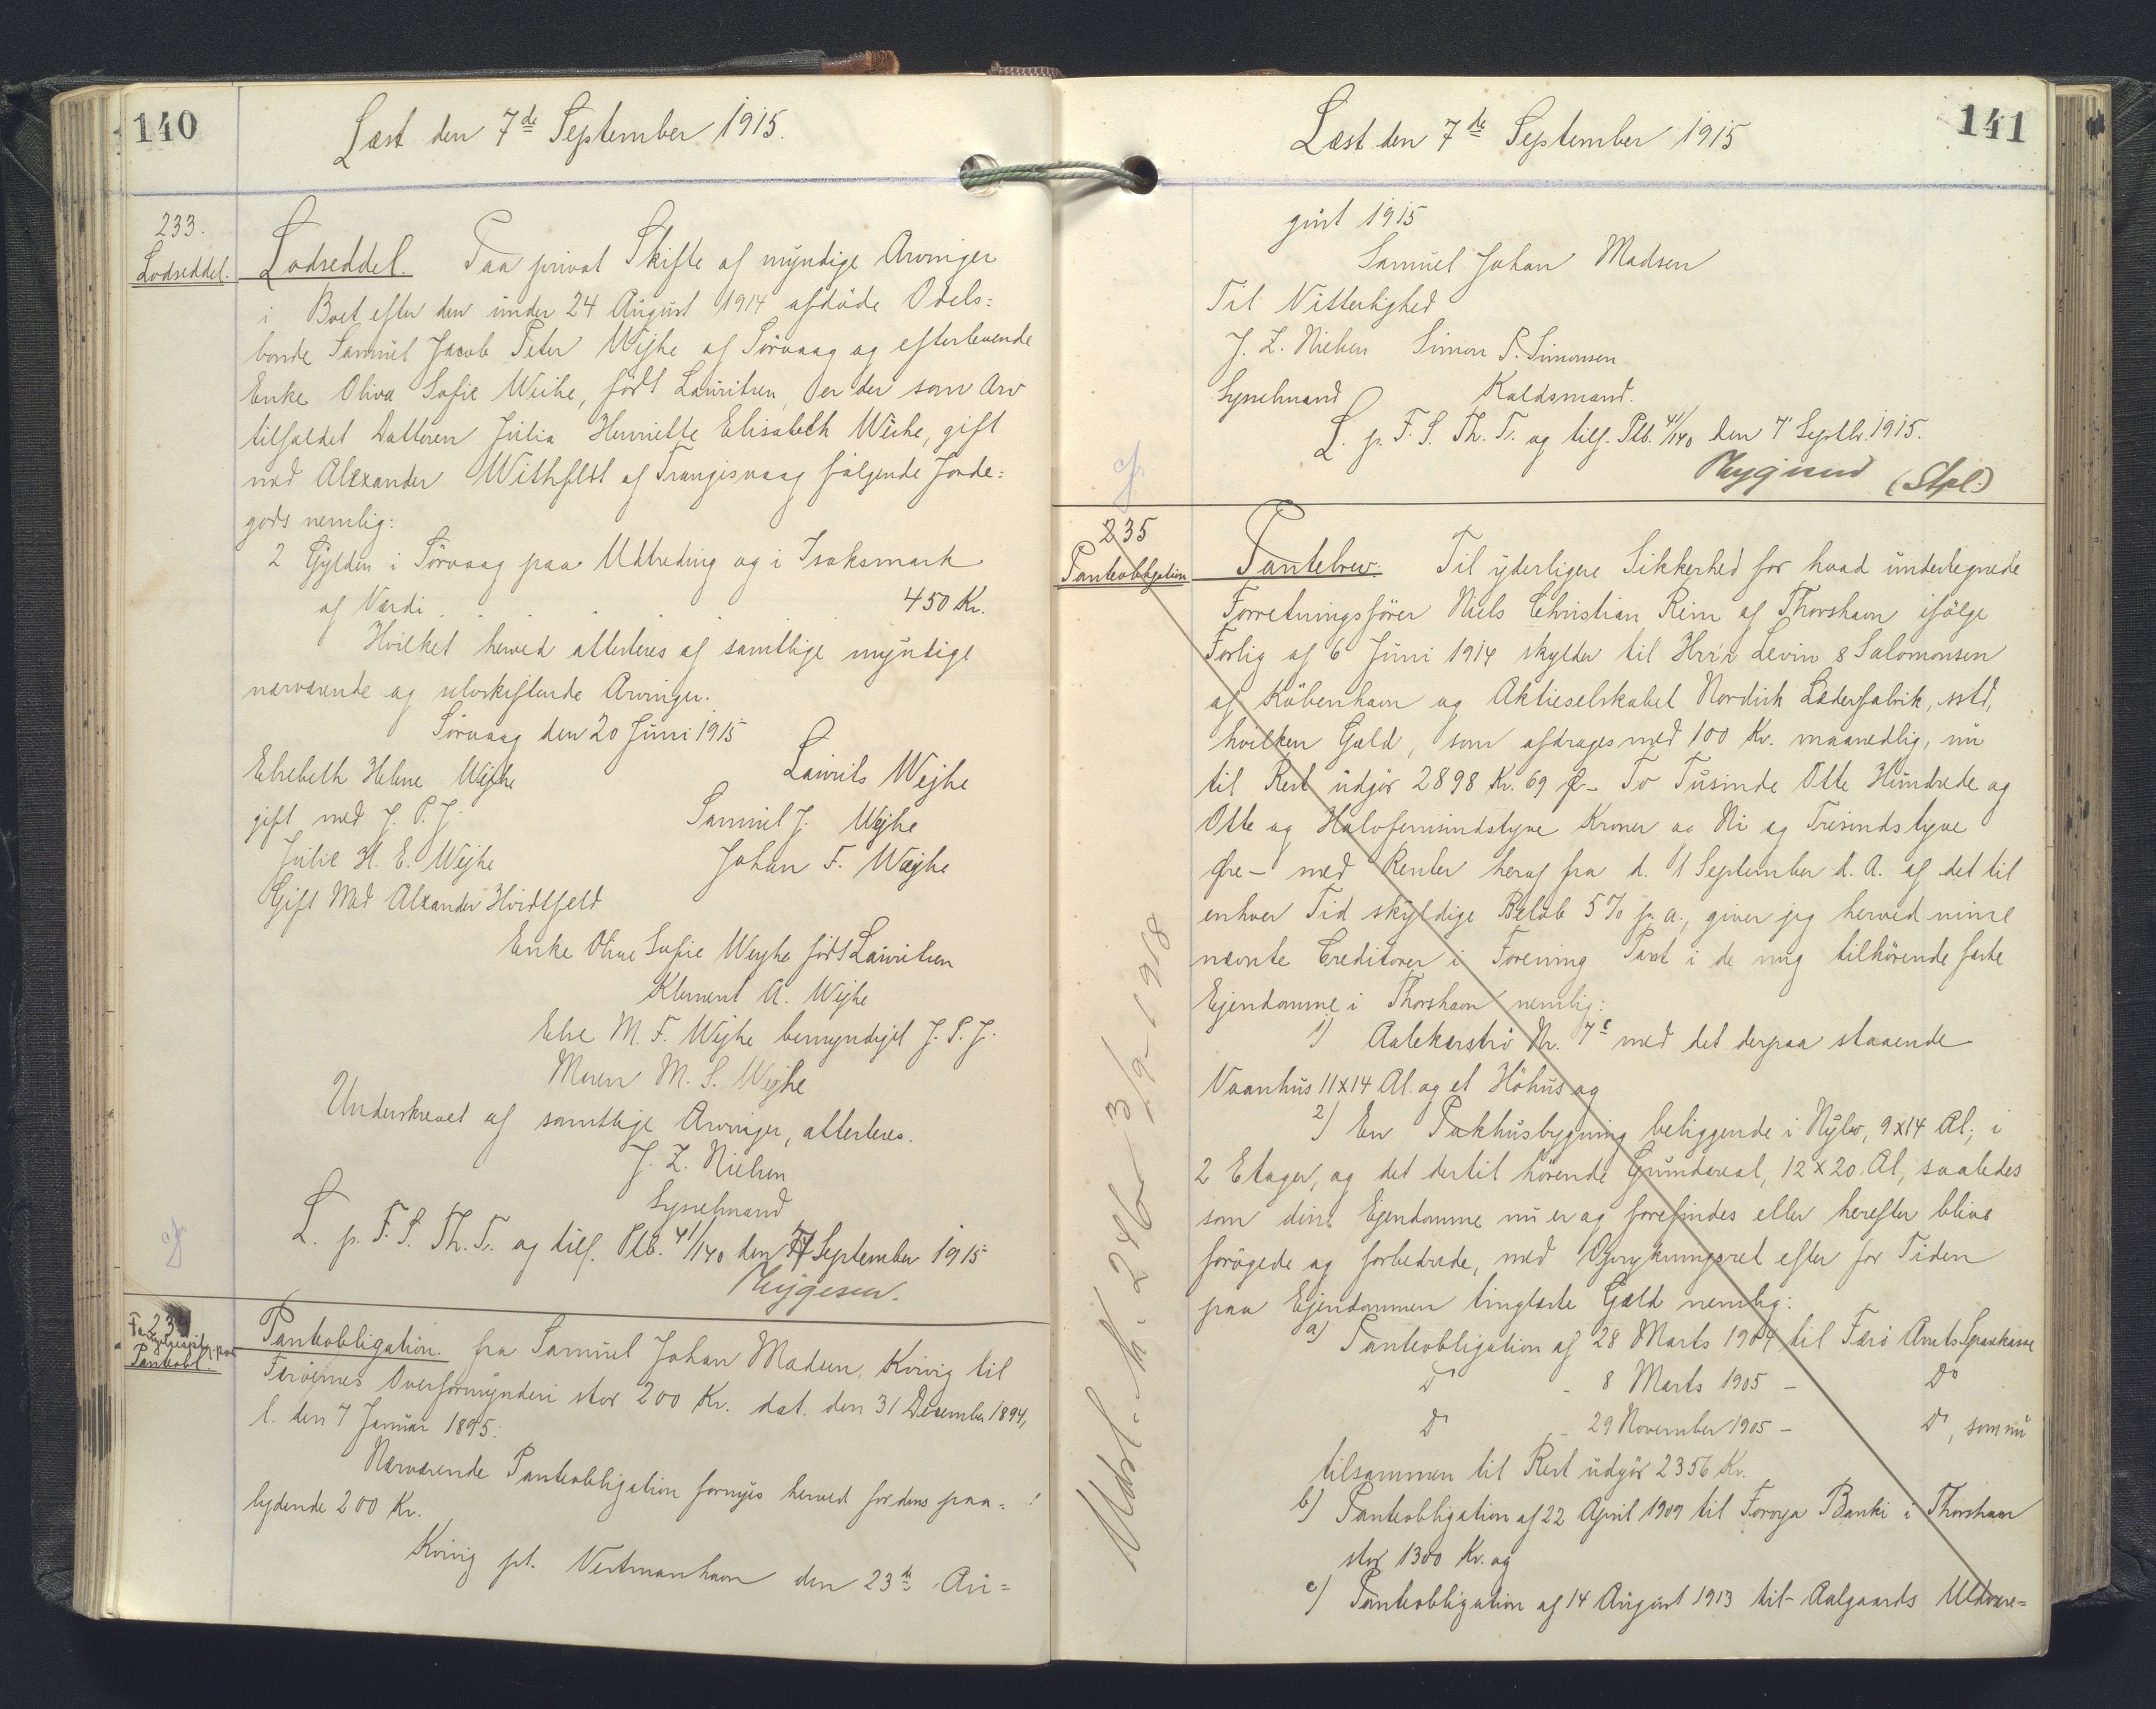 140
Læst den 7de September 1915.
233.
Lodseddel.
Lodseddel. Paa privat Skifte af myndige Arvinger
i Boet efter den under 24 August 1914 afdøde Odels=
bonde Samuel Jacob Peter Wejhe af Sörvaag og efterlevende
Enke Oliva Sofie Weihe, født Lauritsen, er der som Arv
tilfaldet Datteren Julia Henriette Elisabeth Weihe, gift
med Alexander Withfeldt af Trangisvaag følgende Jorde=
gods nemlig:
2 Gylden i Sörvaag paa Udbreding og i Isaksmark
af Værdi . . . . 450 Kr.
Hvilket herved attesteres af samtlige myndige
nærværende og selvskiftende Arvinger.
Sörvaag den 20 Juni 1915
Elsebeth Helene Wejhe Laurits Wejhe
gift med J. P. J. Samuel J. Wejhe
Julie H. E. Wejhe Johan F. Wejhe
Gift Med Alexander Hvidtfeld
Enke Olive Sofie Weyhe født Lauritsen
Klement A. Wejhe
Else M. F. Wejhe bemyndiget J. P. J.
Maren M. S. Wejhe
Underskrevet af samtlige Arvinger, attesteres.
J. Z. Nielsen
Sysselmand
L. p. F. S. Th. T. og tilf. Ptb. 41/140 den 7 September 1915
Pantobl.
Panteobligation. fra Samuel Johan Madsen, Kvivig til
Færøernes Overformynderi stor 200 Kr. dat. den 31 December 1894,
l. den 7 Januar 1895:
Nærværende Panteobligation fornyes herved for dens paa=
lydende 200 Kr.
Kvivig pt. Vestmanhavn den 23de Au=
141
Læst den 7de September 1915
gust 1915
Samuel Johan Madsen
Til Vitterlighed
J. Z. Nielsen Simon P. Simonsen
Sysselmand Kaldsmand.
L. p. F. S. Th. T. og tilf. Ptb. 41/140 den 7' Septbr. 1915.
(Stpl.)
235
Panteobligation
Pantebrev: Til yderligere Sikkerhed for hvad undertegnede
Forretningsfører Niels Christian Rein af Thorshavn ifølge
Forlig af 6 Juni 1914 skylder til Hrr'r Levin & Salomonsen
af København og Aktieselskabet Nordisk Læderfabrik, sstd,
hvilken Gæld, som afdrages med 100 Kr. maanedlig, nu
til Rest udgør 2898 Kr. 69 Ø – To Tusinde Otte Hundrede og
Otte og Halvfemsindstyve Kroner og Ni og Tresindstyve
Øre – med Renter heraf fra d. 1 September d. A. af det til
enhver Tid skyldige Beløb 5% p. a., giver jeg herved mine
nævnte Creditorer i Forening Pant i de mig tilhørende faste
Ejendomme i Thorshavn nemlig:
1) Aalekerströ Nr. 7c med det derpaa staaende
Vaanhus 11x14 Al. og et Höhus og
2) En Pakhusbygning beliggende i Nylv, 9x14 Al; i
2 Etager, og det dertil hørende Grundareal, 12 x 20. Al, saaledes
som disse Ejendomme nu er og forefindes eller herefter blive
forøgede og forbedrede, med Oprykningsret efter for Tiden
paa Ejendommen tinglæste Gæld nemlig:
a) Panteobligation af 28 Marts 1904 til Færö Amts Sparekasse
Do - 8 Marts 1905 – Do
Do - 29 November 1905 – Do, som nu
tilsammen til Rest udgör 2356 Kr.
b) Panteobligation af 22 April 1909 til Foroya Banki i Thorshavn
stor 1300 Kr. og
c) Panteobligation af 14 August 1913 til Aalgaards Uldvare=
Udsl. Nr. 246 3/9-1918